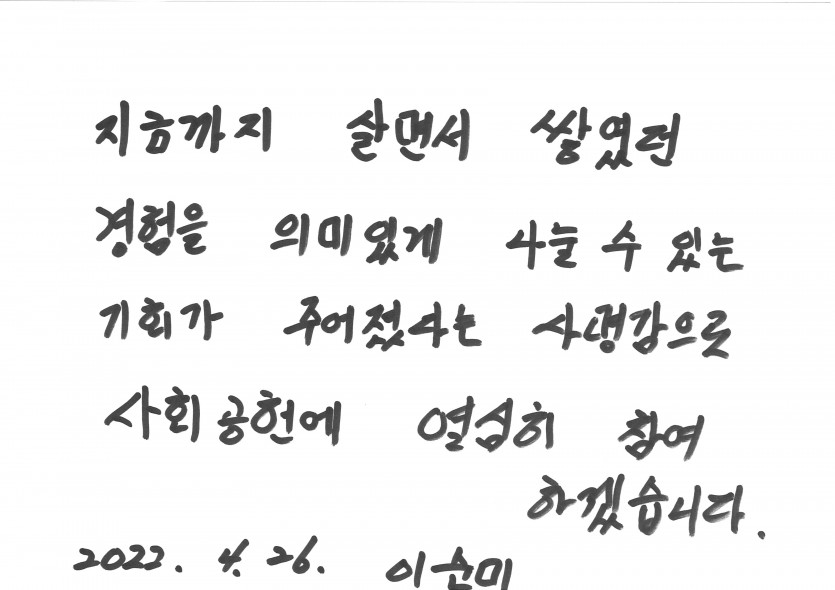 지금까지 살면서 쌓였던
경험을 의미있게 나눌 수 있는
기회가 주어졌다는 사명감으로
사회공헌에 열심히 참여
하겠습니다.
2022. 4. 26. 이순미